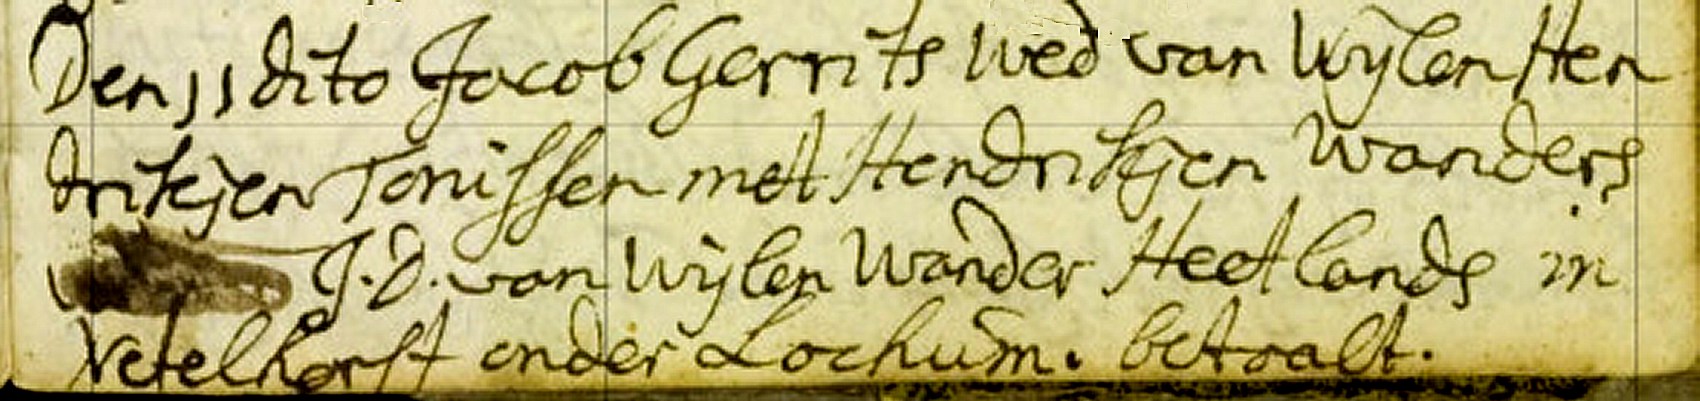 Den 11 dito Jacob Gerrits Wed van Wijlen Hen
drikjen Tonissen met Hendrikjen Wanders
J.D. van Wijlen Wander Heetlands in
Netelhorst onder Lochum. betaalt.